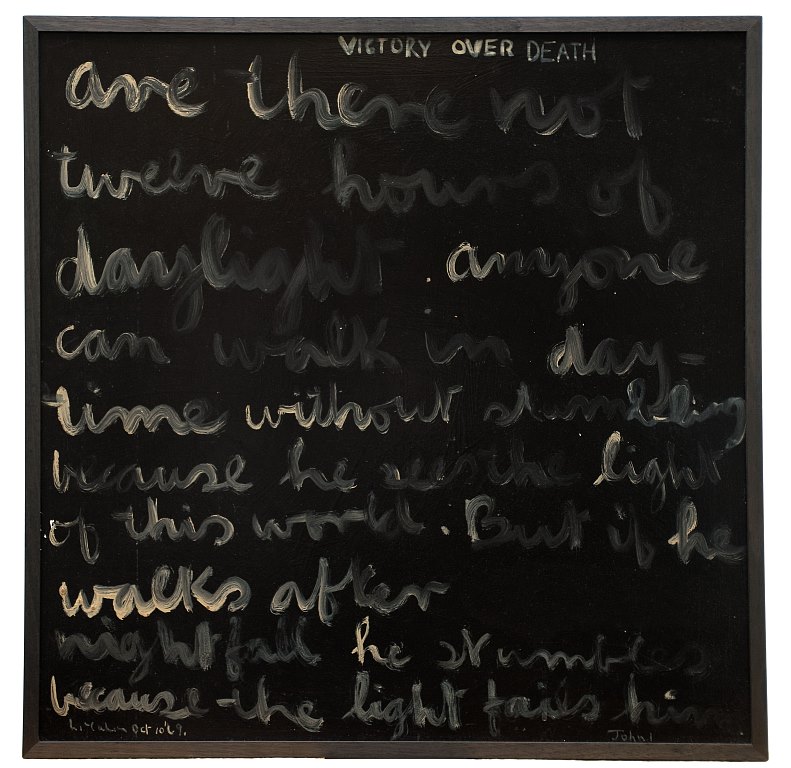 VICTORY OVER DEATH
are there not
twelve hours of
daylight anyone
can walk in day-
time without stumbling
because he sees the light
of this world. But if he
walks after
nightfall he stumbles
because the light fails him
Oct 10 '69. John 1